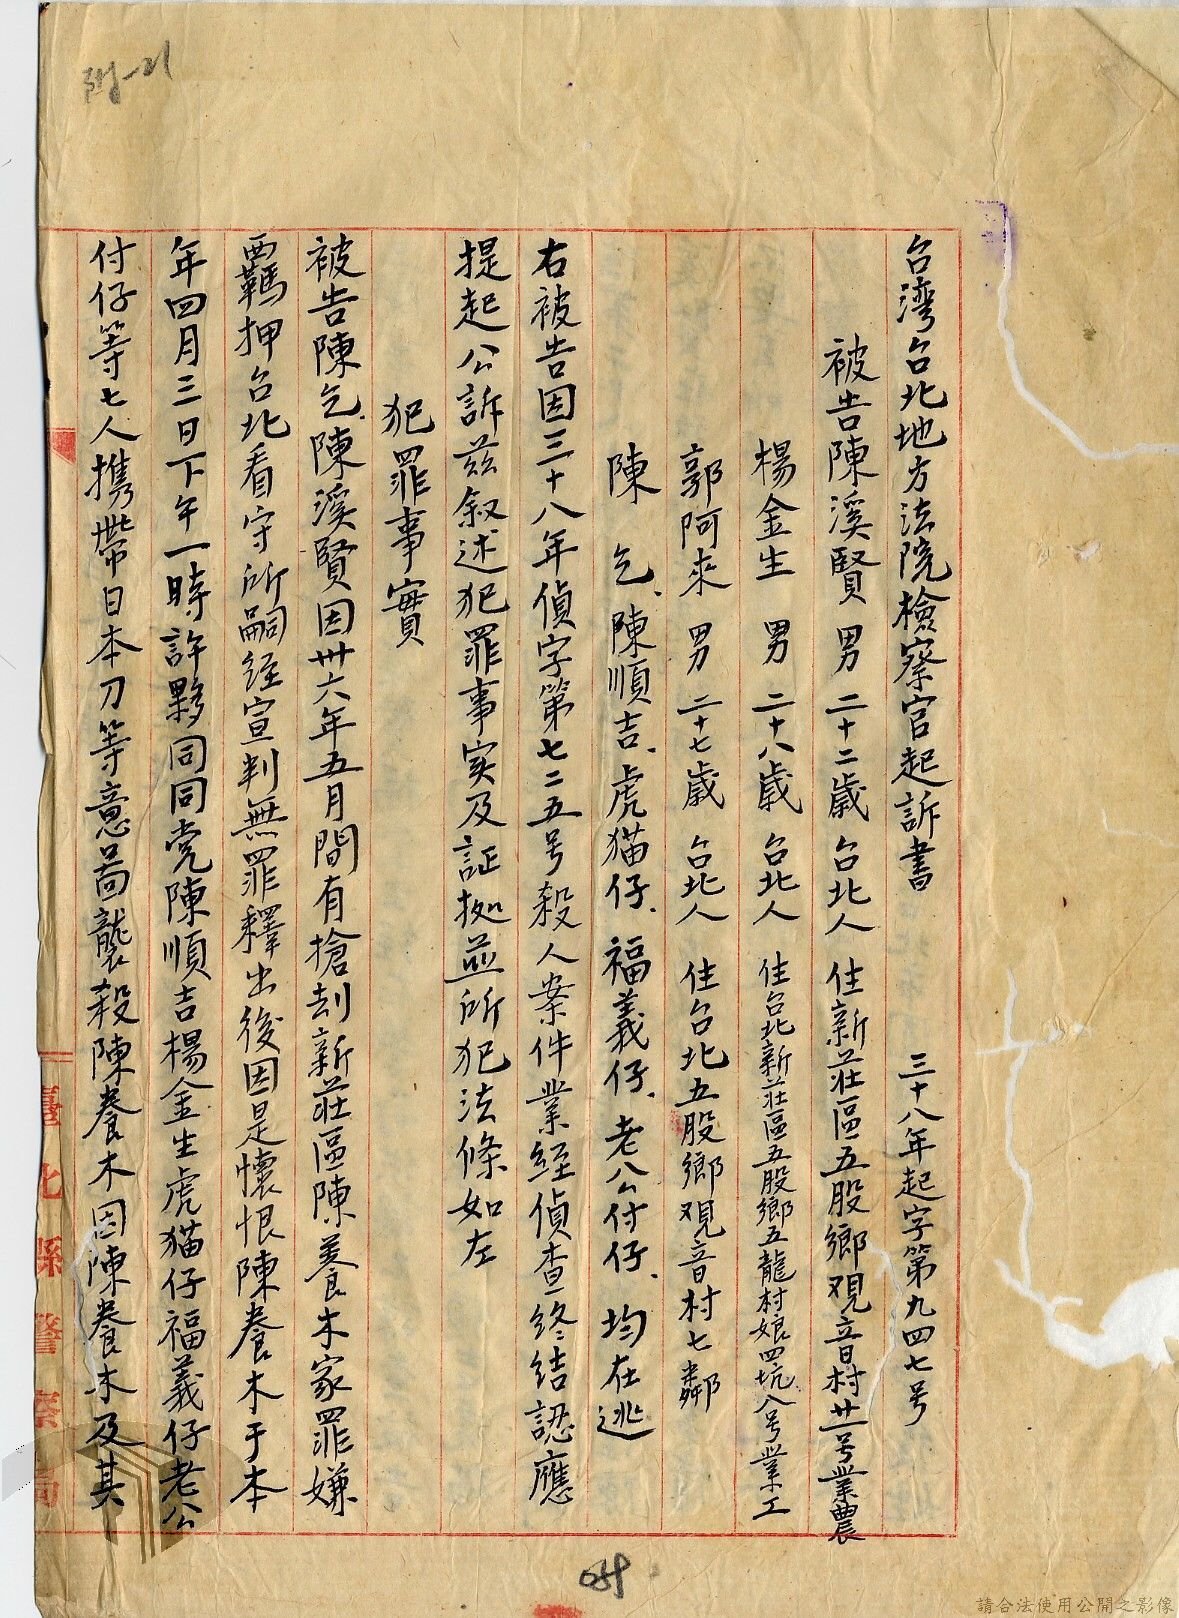 附-21
台湾台北地方法院檢察官起訴書　三十八年起字第九四七号
被告陳溪賢　男　二十二歲　台北人　住新莊區五股鄉观音村廿一号業農
楊金生　男　二十八歲　台北人　住台北新莊區五股鄉五龍村娘四坑八号業工
郭阿來　男　二十七歲　台北人　住台北五股鄉观音村七鄰
陳　乞、陳順吉、虎猫仔、福義仔、老公付仔、均在逃
右被告因三十八年偵字第七二五号殺人案件業経偵查終結認應
提起公訴茲叙述犯罪事实及証拠並所犯法條如左
犯罪事實
被告陳乞、陳溪賢因卅六年五月間有搶刦新莊區陳養木家罪嫌
羈押台北看守所嗣経宣判無罪釋出後因是懷恨陳養木于本
年四月三日下午一時許夥同同党陳順吉楊金生虎猫仔福義仔老公
付仔等七人携帶日本刀等意啚襲殺陳養木因陳養木及其
臺北縣警察局
附
請合法使用公開之影像